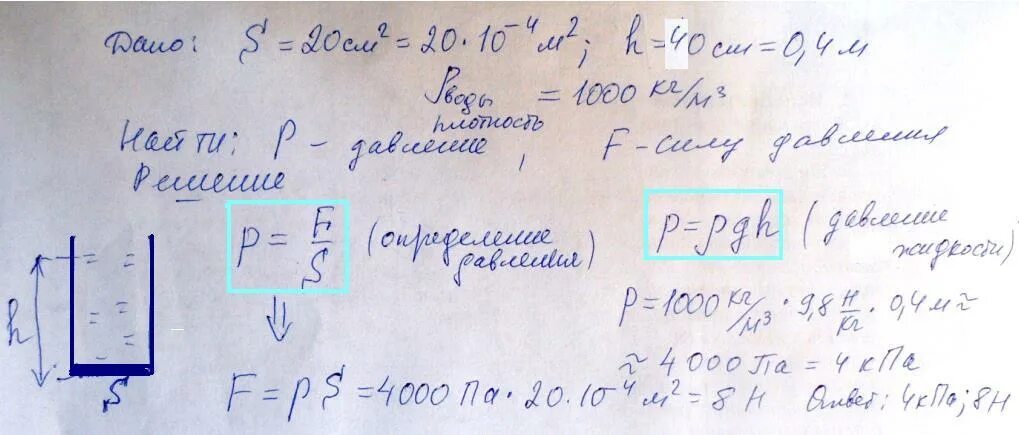 Дано: S = 20 см² = 20·10⁻⁴ м²; h = 40 см = 0,4 м
ρ воды = 1000 кг/м³
плотность
Найти: P – давление, F – силу давления
Решение
p = F/S (определение давления)
p = ρgh (давление жидкости)
p = 1000 кг/м³ · 9,8 Н/кг · 0,4 м ≈
≈ 4000 Па = 4 кПа
h
S
⇓
F = pS = 4000 Па · 20·10⁻⁴ м² = 8 Н
Ответ: 4 кПа; 8 Н